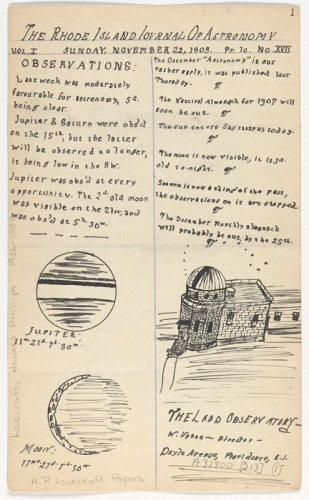 1
THE RHODE ISLAND JOURNAL OF ASTRONOMY
VOL. I SUNDAY, NOVEMBER 22, 1903. Pr. 1c. NO. XVII
OBSERVATIONS:
Last week was moderately
favourable for astronomy, 5d.
being clear.
Jupiter & Saturn were obs'd
on the 15th, but the latter
will be observed no longer,
it being low in the SW.
Jupiter was obs'd at every
opportunity. The 2d. old moon
was visible on the 21st, and
was obs'd at 5h 30m.
JUPITER:
11m 21d. 7h 30m.
MOON:
11m 21d. 5h 30m
H. P. Lovecraft Papers
Lovecraft, Howard Phillips
The December "Astronomy" is out
rather early, it was published last
Thursday.
The Nautical Almanack for 1907 will
soon be out.
The sun enters Sagittarus today.
The moon is now visible, it is 3d.
old to-night.
Saturn is now a thing of the past,
the observations on it are stopped
The December Monthly almanack
will probably be out by the 25th.
THE LADD OBSERVATORY
W. Upton — Director —
Doyle Avenue, Providence, R.I.
A32800 [213] (1)